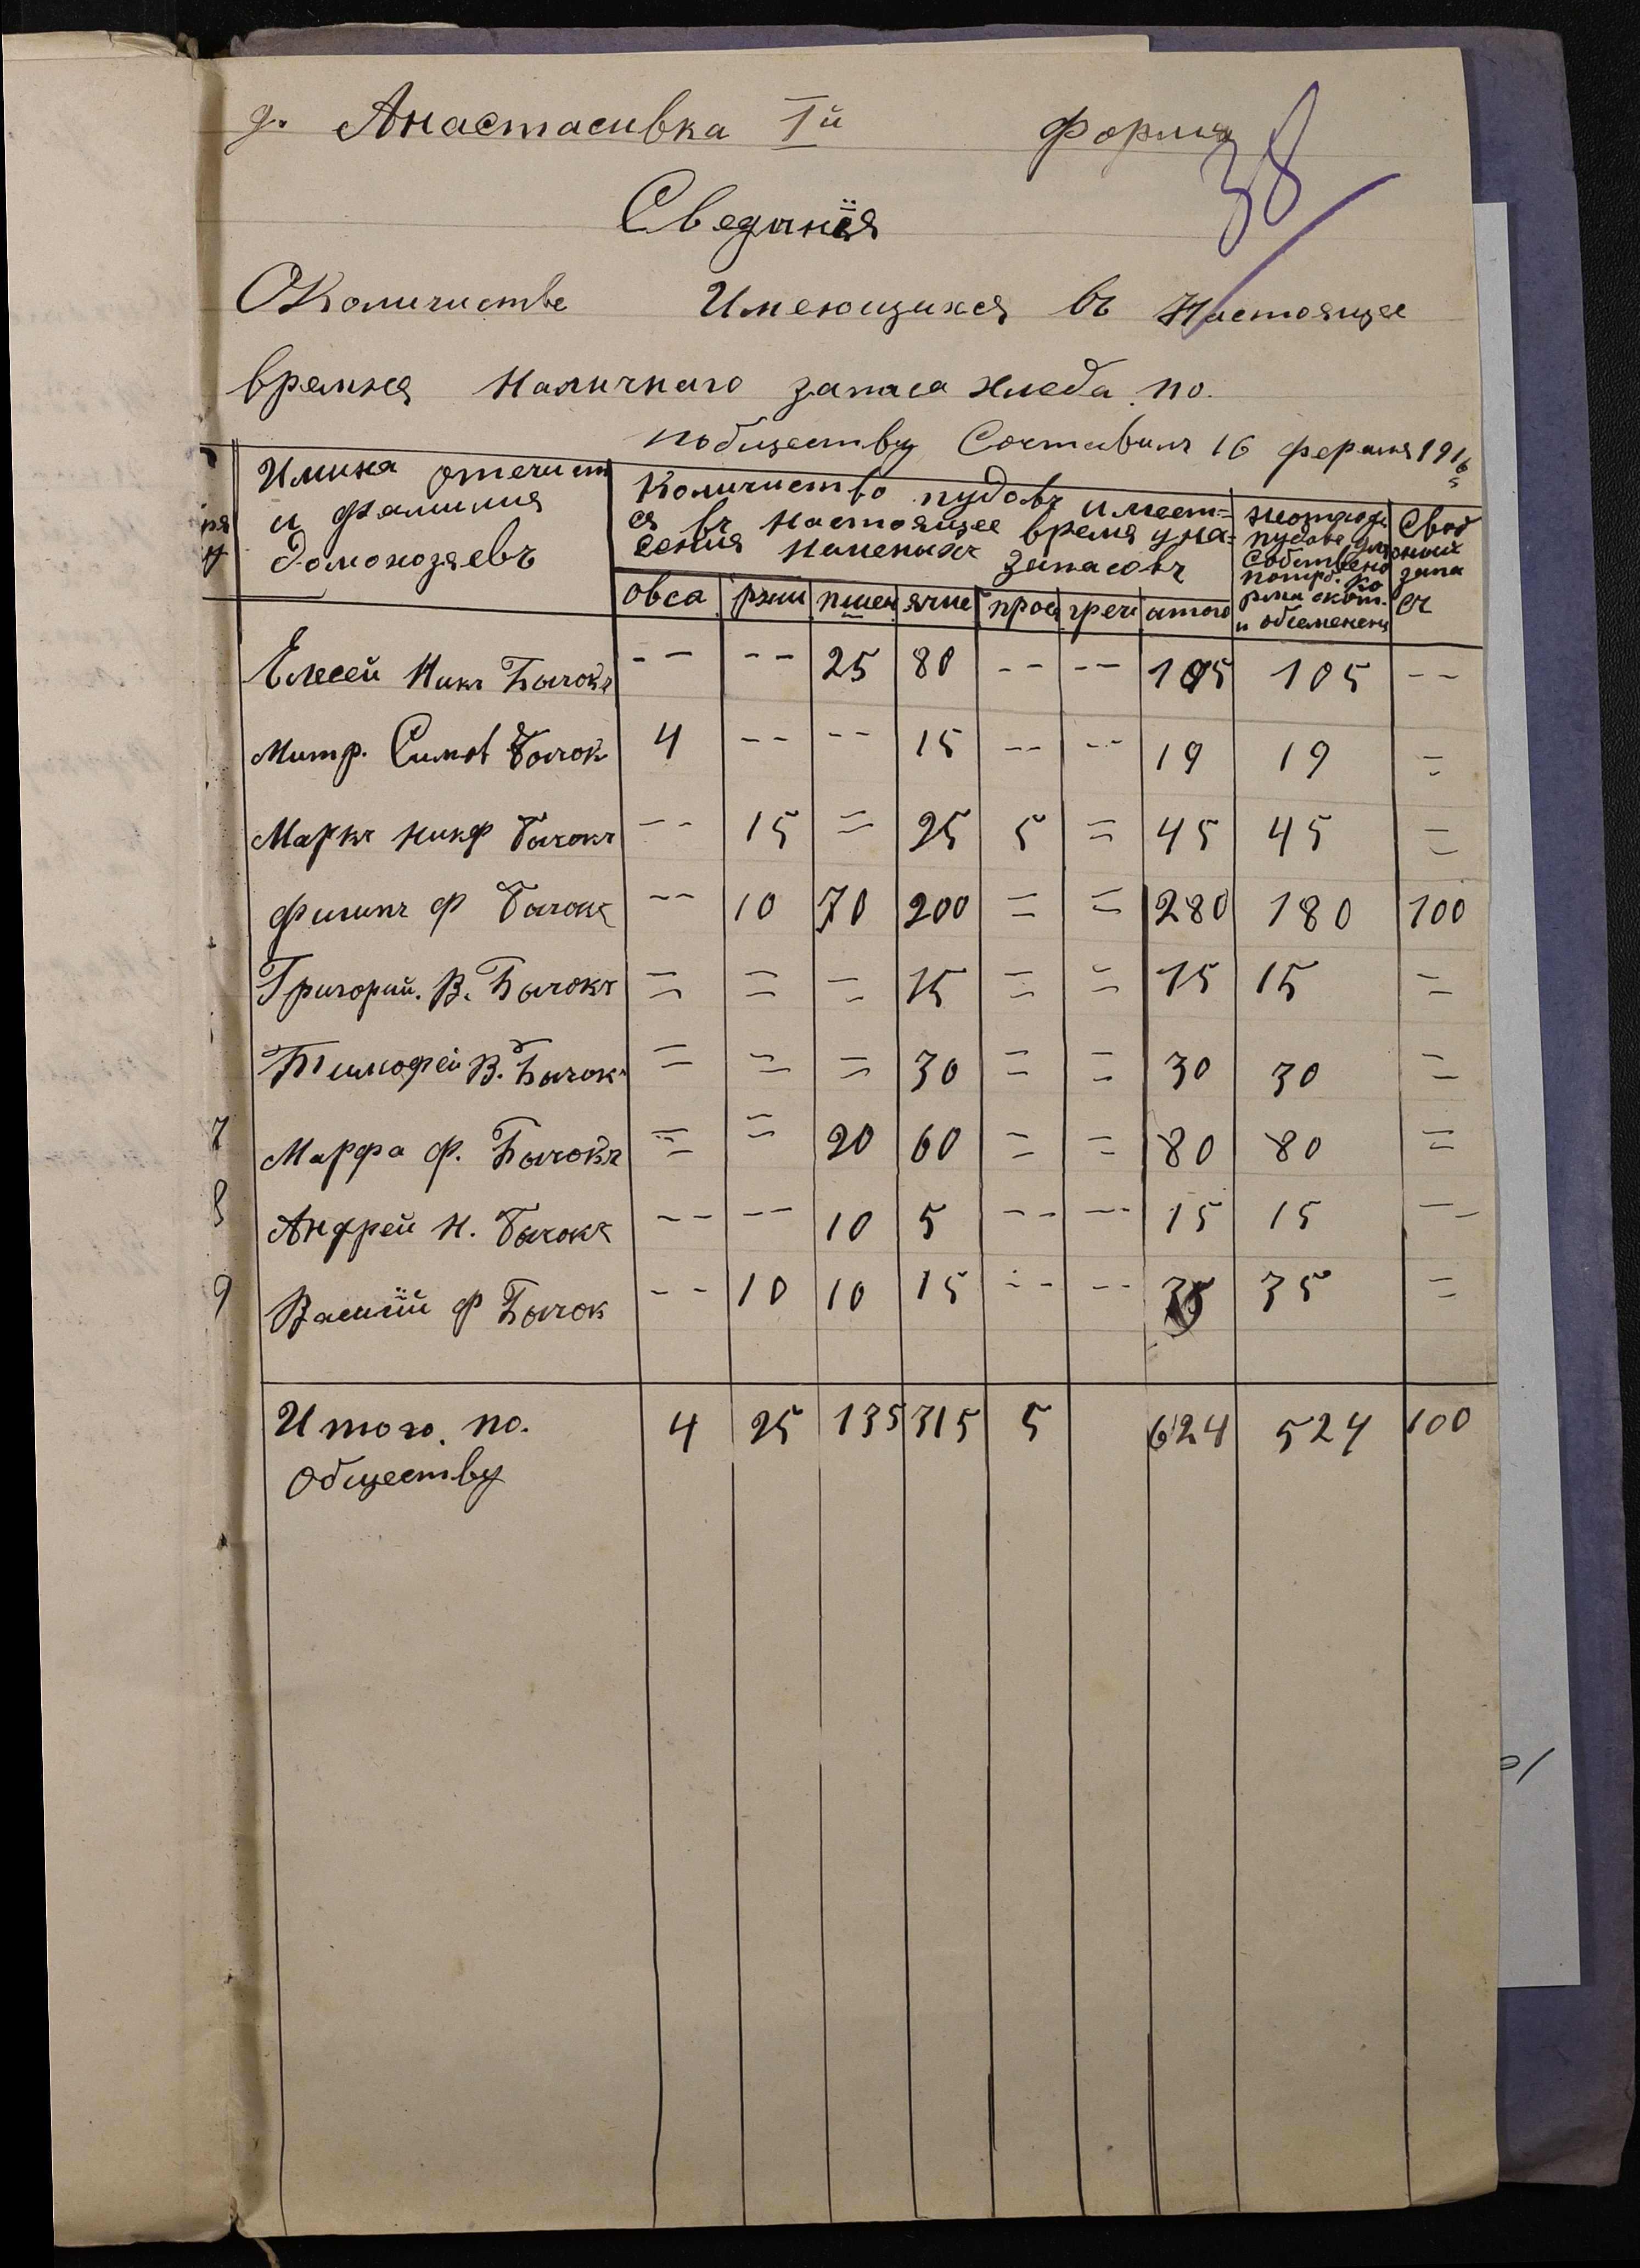 д. Анастасивка 1й форма
38
Сведения
О Количистве Имеющихся въ Настоящее
времня Наличнаго запаса хлеба по.
побществу Составилъ 16 фераля 1916
Имина отечист и фамилия домохозяевъ | Количиство пудовъ имеет=ся въ Настоящее время у насения Наменыхъ запасовъ | пудове для собствено потрб. кормл скот. и обсеменени | Свободных запасъ
овса | ржи | пшен | ячме | прос | греч | итого
Елесей Ник Бычокъ -- -- 25 80 -- -- 105 105 --
Митр. Симов Бычок 4 -- -- 15 -- -- 19 19 =
Маркъ Никф Бычокъ -- 15 = 25 5 = 45 45 =
Филипъ Ф Бычокъ -- 10 70 200 = = 280 180 100
Григорий. В. Бычокъ = = = 15 = = 15 15 =
Тимофей В. Бычокъ = = = 30 = = 30 30 =
7 Марфа Ф. Бычокъ = = 20 60 = = 80 80 =
8 Андрей Н. Бычокъ -- -- 10 5 -- -- 15 15 --
9 Василий Ф Бычок -- 10 10 15 -- -- 35 35 =
Итого. по. 4 25 135 315 5 624 524 100
Обществу